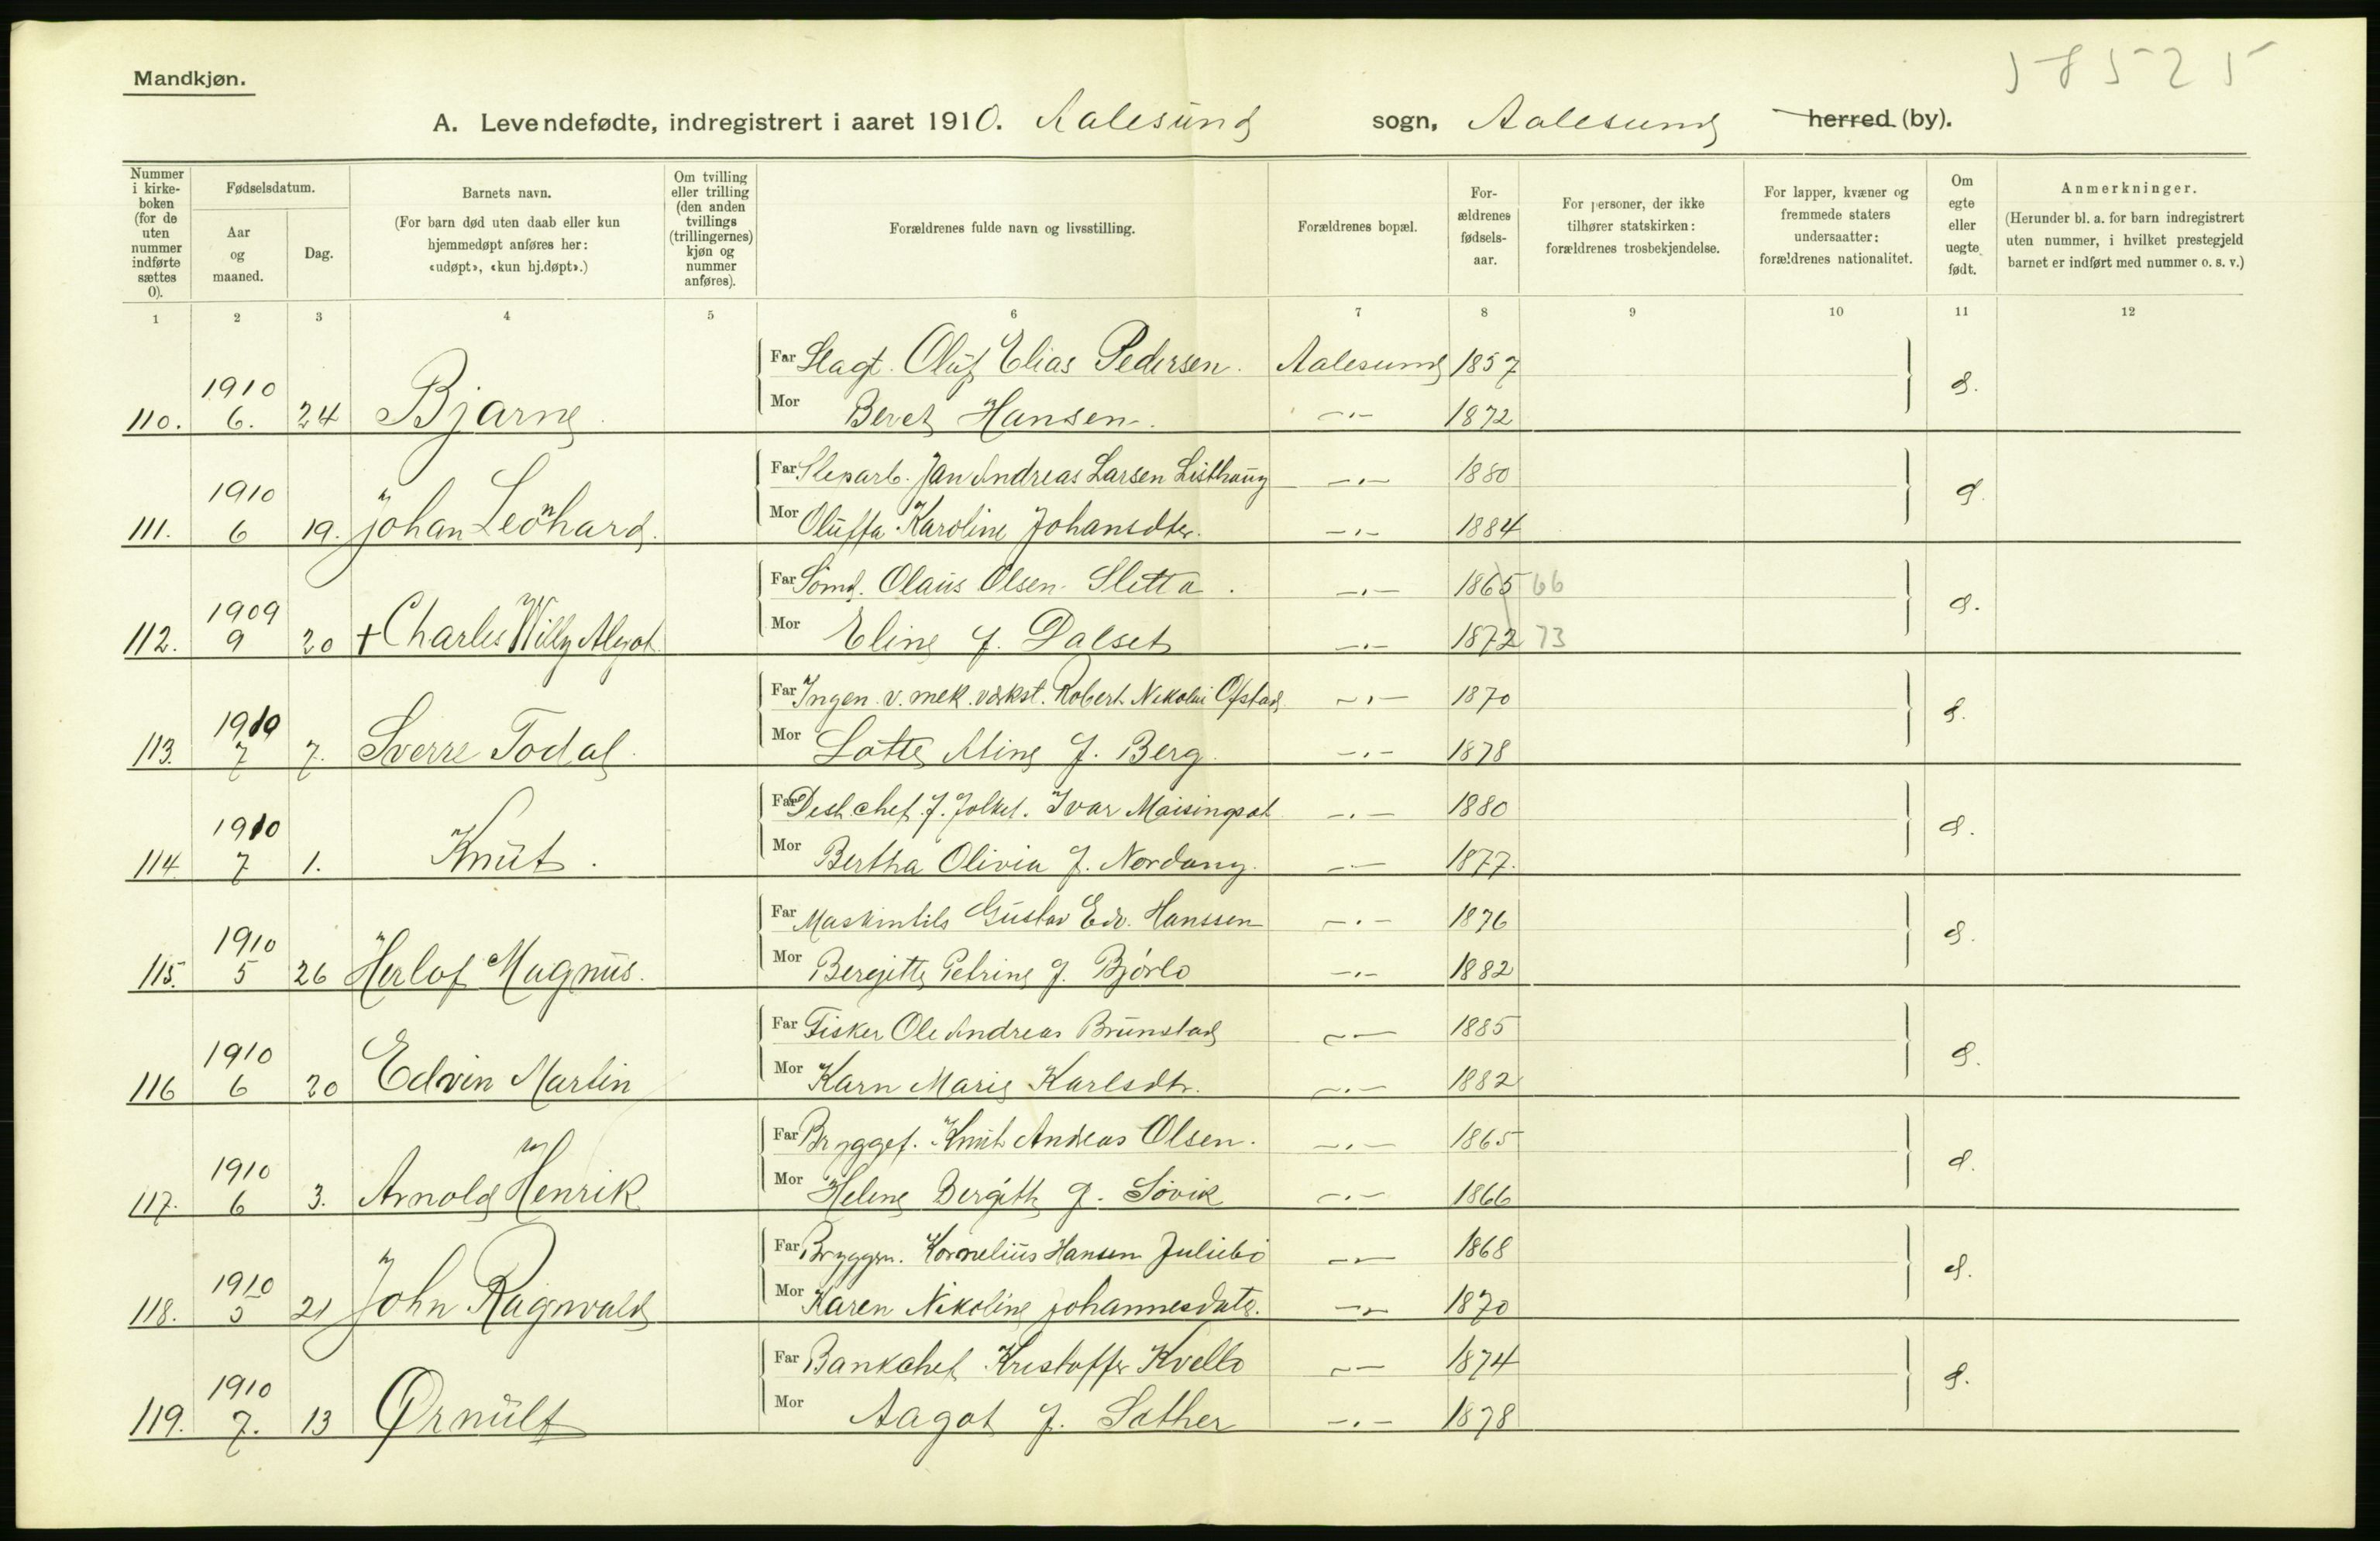 58525
Mandkjøn.
A. Levendefødte, indregistrert i aaret 1910. Aalesund sogn, Aalesund herred (by).
Nummer i kirkeboken (for de uten nummer indførte sættes 0).
Fødselsdatum.
Aar og maaned.
Dag.
Barnets navn.
(For barn død uten daab eller kun hjemmedøpt anføres her: «udøpt», «kun hj.døpt».)
Om tvilling eller trilling (den anden tvillings (trillingernes) kjøn og nummer anføres).
Forældrenes fulde navn og livsstilling.
Forældrenes bopæl.
For-ældrenes fødsels-aar.
For personer, der ikke tilhører statskirken: forældrenes trosbekjendelse.
For lapper, kvæner og fremmede staters undersaatter: forældrenes nationalitet.
Om egte eller uegte født.
Anmerkninger.
(Herunder bl. a. for barn indregistrert uten nummer, i hvilket prestegjeld barnet er indført med nummer o. s. v.)
1 2 3 4 5 6 7 8 9 10 11 12
110. 1910 6. 24 Bjarne
Far Slagt. Oluf Elias Pedersen. Aalesund 1857
Mor Beret Hansen. -"- 1872
111. 1910 6 19. Johan Leonhard.
Far Jan Andreas Larsen Listhaug -"- 1880
Mor Oluffa Karoline Johansdtr. -"- 1884
112. 1909 9 20 + Charles Willy Algot
Far Sømd. Olaus Olsen Sletta. -"- 1865 66
Mor Eline f. Dalset -"- 1872 73
113. 1910 7 7. Sverre Todal.
Far Ingen. v. mek. verkst. Robert Nikolai Ofstad -"- 1870
Mor Lotte Aline f. Berg. -"- 1878
114 1910 7 1. Knut.
Far Ivar -"- 1880
Mor Bertha Olivia f. Nordang. -"- 1877.
115. 1910 5 26 Herlof Magnus.
Far Gustav Edv. Hanssen -"- 1876
Mor Bergitte Petrine f. Bjørlo -"- 1882
116 1910 6 20 Edvin Martin
Far Fisker Ole Andreas Brunstad -"- 1885
Mor Karn Marie Karlsdtr. -"- 1882
117. 1910 6 3. Arnold Henrik
Far Bryggef. Knut Andreas Olsen. -"- 1865
Mor Helene Bergitte f. Søvik -"- 1866
118. 1910 5 21 John Ragnvald
Far Kornelius Hansen Juliebø -"- 1868
Mor Karen Nikoline Johannesdatr. -"- 1870
119. 1910 7. 13 Ørnulf
Far Bankchef Kristoffer Kvello -"- 1874
Mor Aagot f. Sather -"- 1878